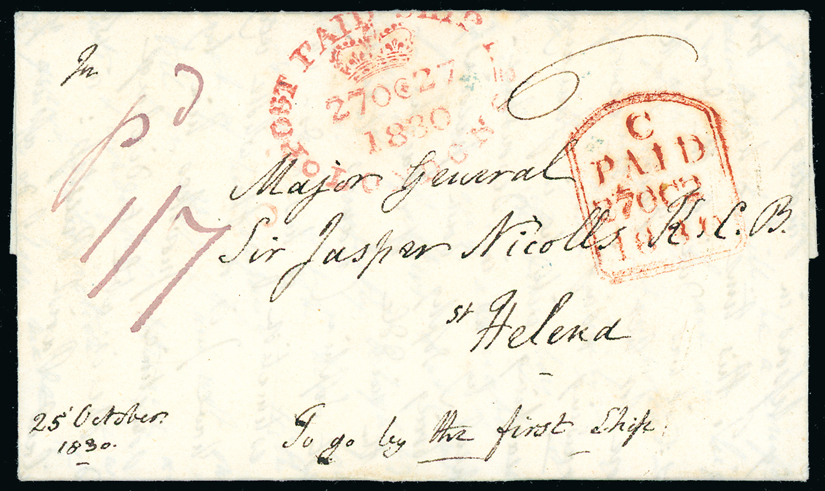 In
pd
1/7
POST PAID SHIP L LONDON
27 OC 27
1830
6
C
PAID
27 OC 27
1830
Major General
Sir Jasper Nicolls K.C.B.
St Helena
25 October.
1830.
To go by the first Ship.